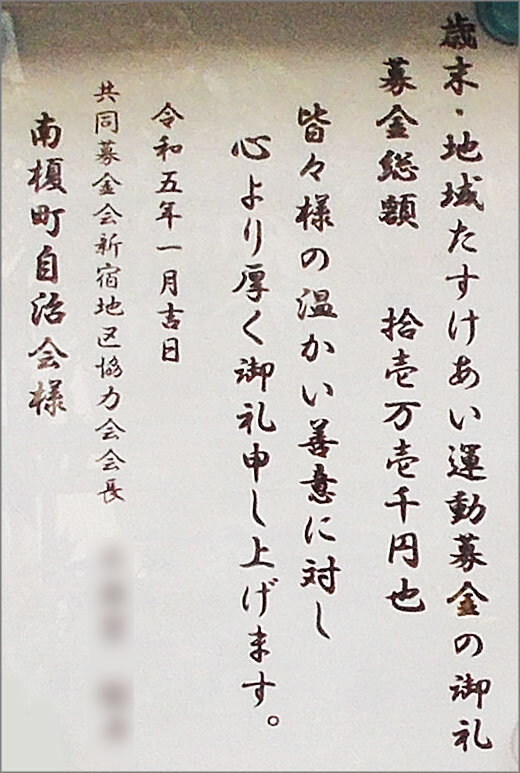 歳末・地域たすけあい運動募金の御礼
募金総額 拾壱万壱千円也
皆々様の温かい善意に対し
心より厚く御礼申し上げます。
令和五年一月吉日
共同募金会新宿地区協力会会長
南榎町自治会様